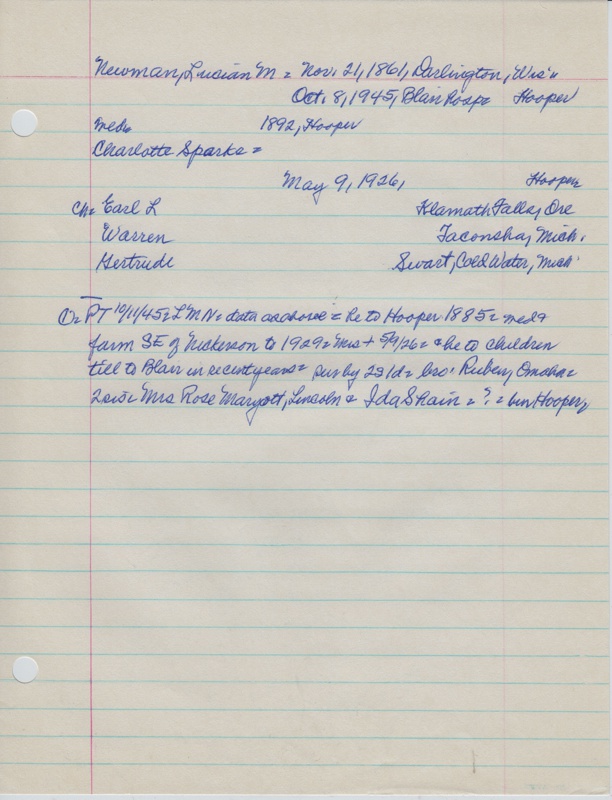 Newman, Lucian M = Nov. 21, 1861, Darlington, Wis"
Oct. 8, 1945, Blair Hosp= Hooper
med= 1892, Hooper
Charlotte Sparks =
May 9, 1926, Hooper
Ch= Earl L Klamath Falls, Ore
Warren Taconsha, Mich.
Gertrude Swart, Cold Water, Mich.
O= PT 10/11/45= L M N= data as above = he to Hooper 1885= med &
farm SE of Nickerson to 1929= Mrs + 5/9/26= & he to children
till to Blair in recent years= sur by 2S 1d= bro. Ruben, Omaha=
2 sis= Mrs Rose Maryott, Lincoln & Ida Shain = ? = bur Hooper,